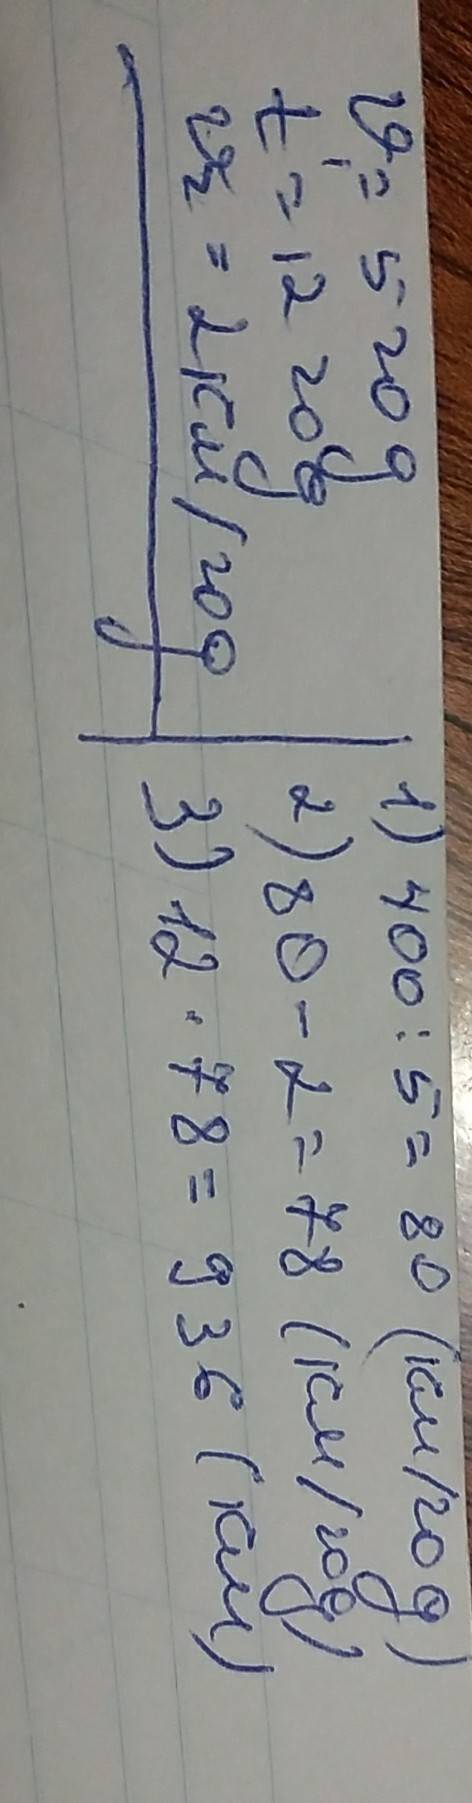 V₁ = 5 год
t = 12 год
V₂ = 2 км/год
1) 400 : 5 = 80 (км/год)
2) 80 - 2 = 78 (км/год)
3) 12 · 78 = 936 (км)